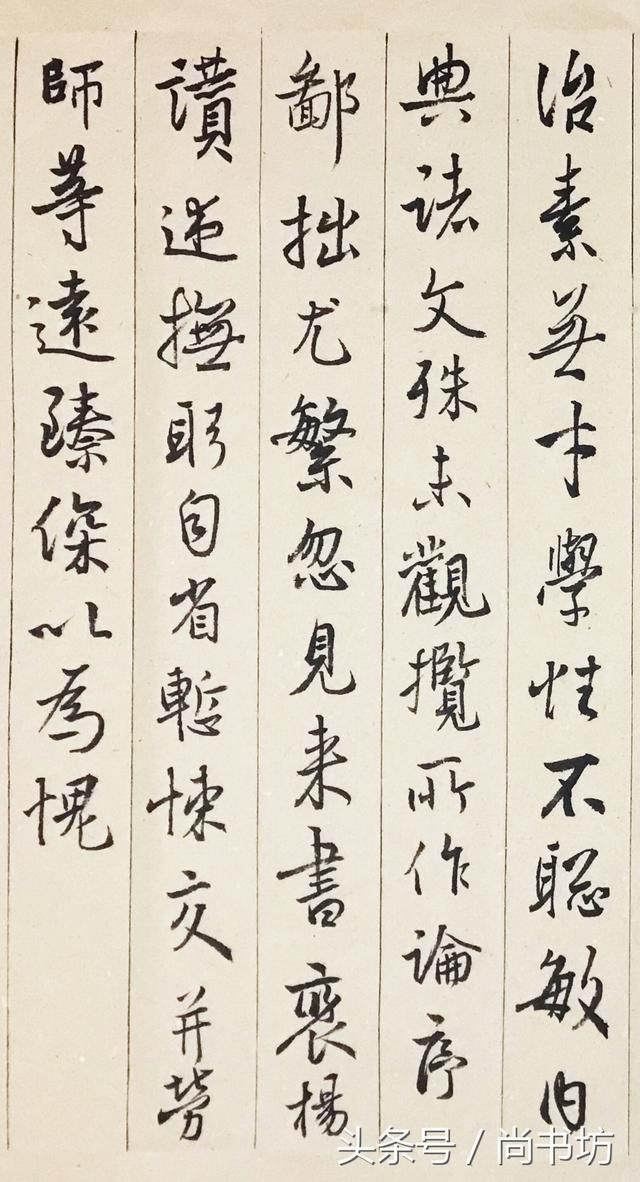 治素無才學性不聡敏内
典諸文殊未觀攬所作論序
鄙拙尤繁忽見来書褒揚
讃述撫躬自省慙悚交并勞
師等遠臻深以為愧
头条号 / 尚书坊